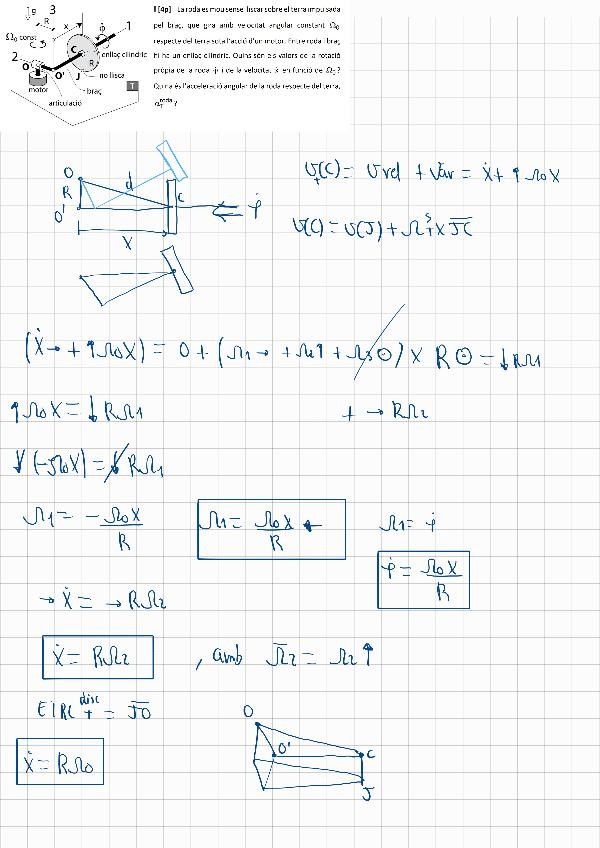 g 3
R x φ̇ 1
Ω₀ const
C
enllaç cilíndric
2 O R
O' J no llisca
motor braç
articulació
T
[4p] La roda es mou sense lliscar sobre el terra impulsada
pel braç, que gira amb velocitat angular constant Ω₀
respecte del terra sota l'acció d'un motor. Entre roda i braç
hi ha un enllaç cilíndric. Quins són els valors de la rotació
pròpia de la roda φ̇ i de la velocitat ẋ en funció de Ω₀?
Quina és l'acceleració angular de la roda respecte del terra,
α roda T ?
O
R d C
O' ⇐ φ̇
X
v_T(C) = v rel + v ar = ẋ + ↑Ω₀X
v(C) = v(J) + Ω^S_T × J̅C̅
(ẋ→ + ↑Ω₀X) = 0 + (Ω₁→ + Ω₂↑ + Ω₃⊙) × R⊙ = ↓RΩ₁
↑Ω₀X = ↓RΩ₁ + → RΩ₂
↓(-Ω₀X) = ↓RΩ₁
Ω₁ = -Ω₀X/R Ω₁ = Ω₀X/R ← Ω₁ = φ̇
φ̇ = Ω₀X/R
→ẋ = →RΩ₂
ẋ = RΩ₂ , amb Ω̅₂ = Ω₂↑
EIRC^disc_T = J̅O̅
O
O' C
J
ẋ = RΩ₀